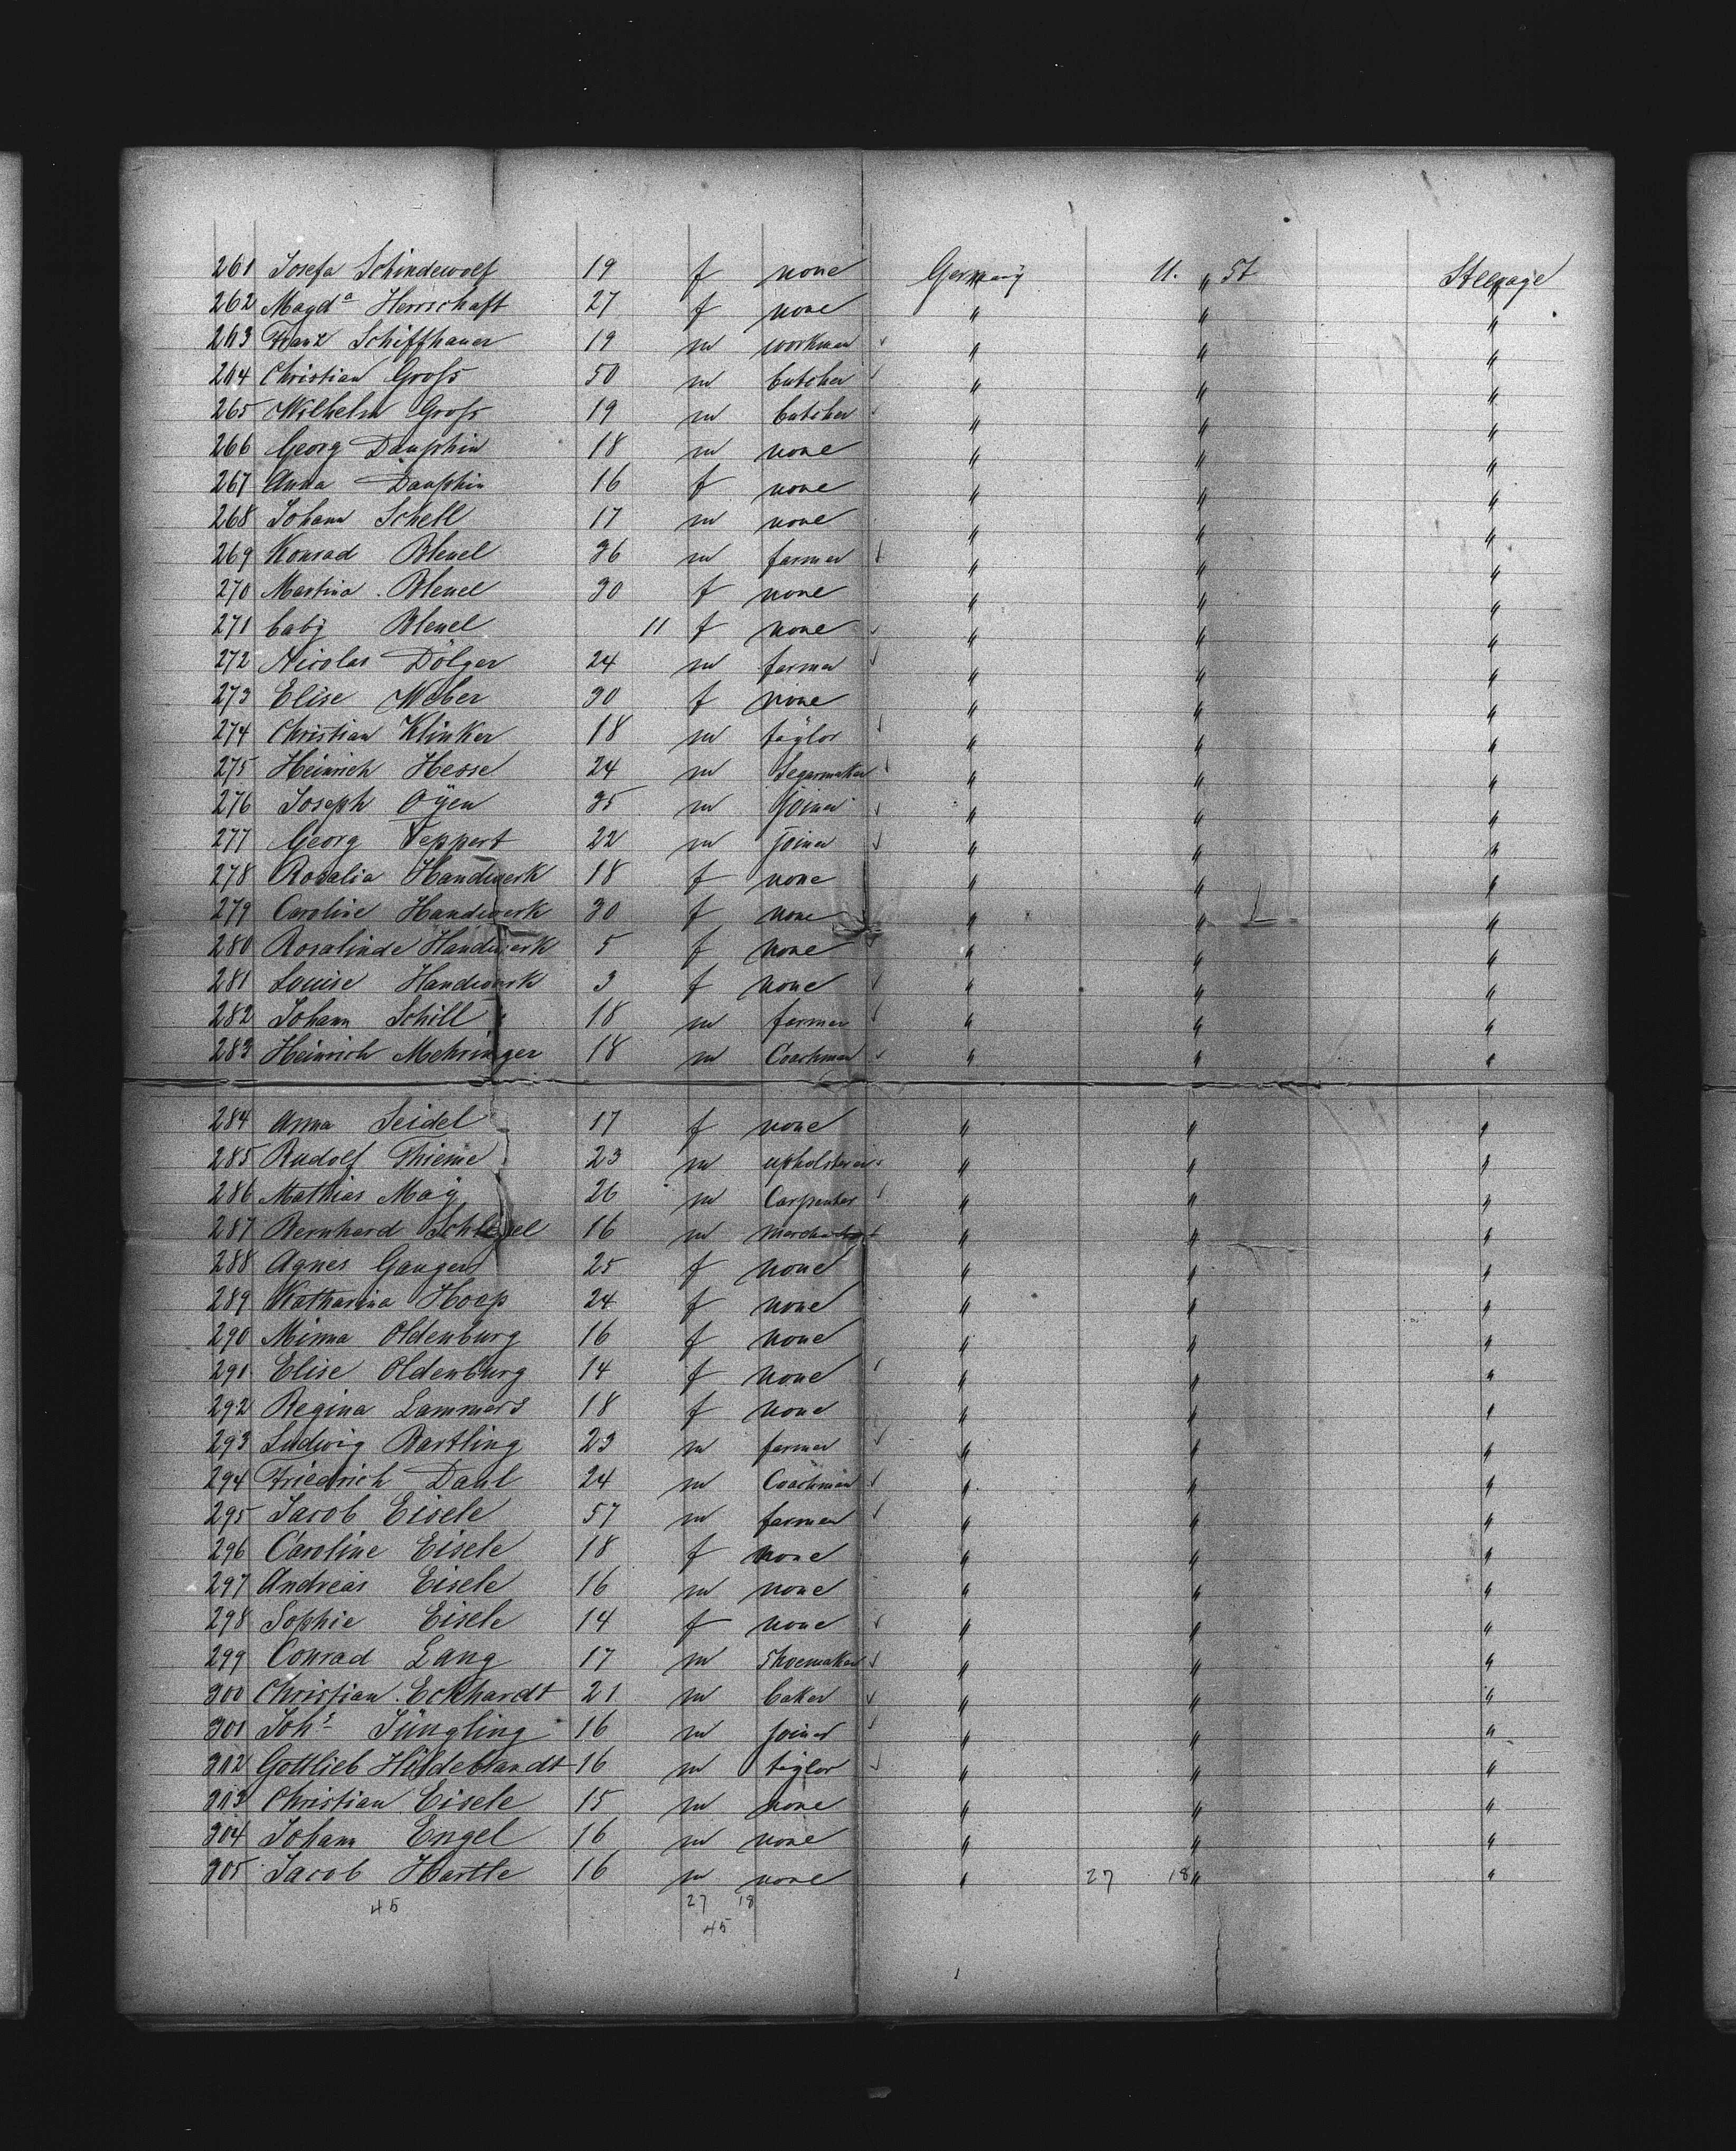 261 Josefa Schindewolf 19 f none Germany U. St Steerage
262 Magdᵃ Herrschaft 27 f none " " "
263 Franz Schiffhauer 19 m workman " " "
264 Christian Groß 50 m butcher " " "
265 Wilhelm Groß 19 m butcher " " "
266 Georg Dauphin 18 m none " " "
267 Anna Dauphin 16 f none " " "
268 Johann Schell 17 m none " " "
269 Konrad Bleuel 36 m farmer " " "
270 Martina Bleuel 30 f none " " "
271 baby Bleuel 11 f none " " "
272 Nicolas Dölger 24 m farmer " " "
273 Elise Weber 30 f none " " "
274 Christian Klinker 18 m taylor " " "
275 Heinrich Hesse 24 m Segarmaker " " "
276 Joseph Oÿen 35 m joiner " " "
277 Georg Teppert 22 m joiner " " "
278 Rosalia Handwerk 18 f none " " "
279 Caroline Handwerk 30 f none " " "
280 Rosalinde Handwerk 5 f none " " "
281 Louise Handwerk 3 f none " " "
282 Johann Schill 18 m farmer " " "
283 Heinrich Mehringer 18 m Coachman " " "
284 Anna Seidel 17 f none " " "
285 Rudolf Thieme 23 m upholsterer " " "
286 Mathias Maÿ 26 m Carpenter " " "
287 Bernhard Schlegel 16 m " " "
288 Agnes Ganger 25 f none " " "
289 Katharina Hoop 24 f none " " "
290 Minna Oldenburg 16 f none " " "
291 Elise Oldenburg 14 f none " " "
292 Regina Lammers 18 f none " " "
293 Ludwig Bartling 23 m farmer " " "
294 Friedrich Dahl 24 m Coachman " " "
295 Jacob Eisele 57 m farmer " " "
296 Caroline Eisele 18 f none " " "
297 Andreas Eisele 16 m none " " "
298 Sophie Eisele 14 f none " " "
299 Conrad Lang 17 m Shoemaker " " "
300 Christian Eckhardt 21 m baker " " "
301 Johˢ Jüngling 16 m joiner " " "
302 Gottlieb Hildebrandt 16 m taylor " " "
303 Christian Eisele 15 m none " " "
304 Johann Engel 16 m none " " "
305 Jacob Hertle 16 m none " 27 18 " "
45 27 18
45